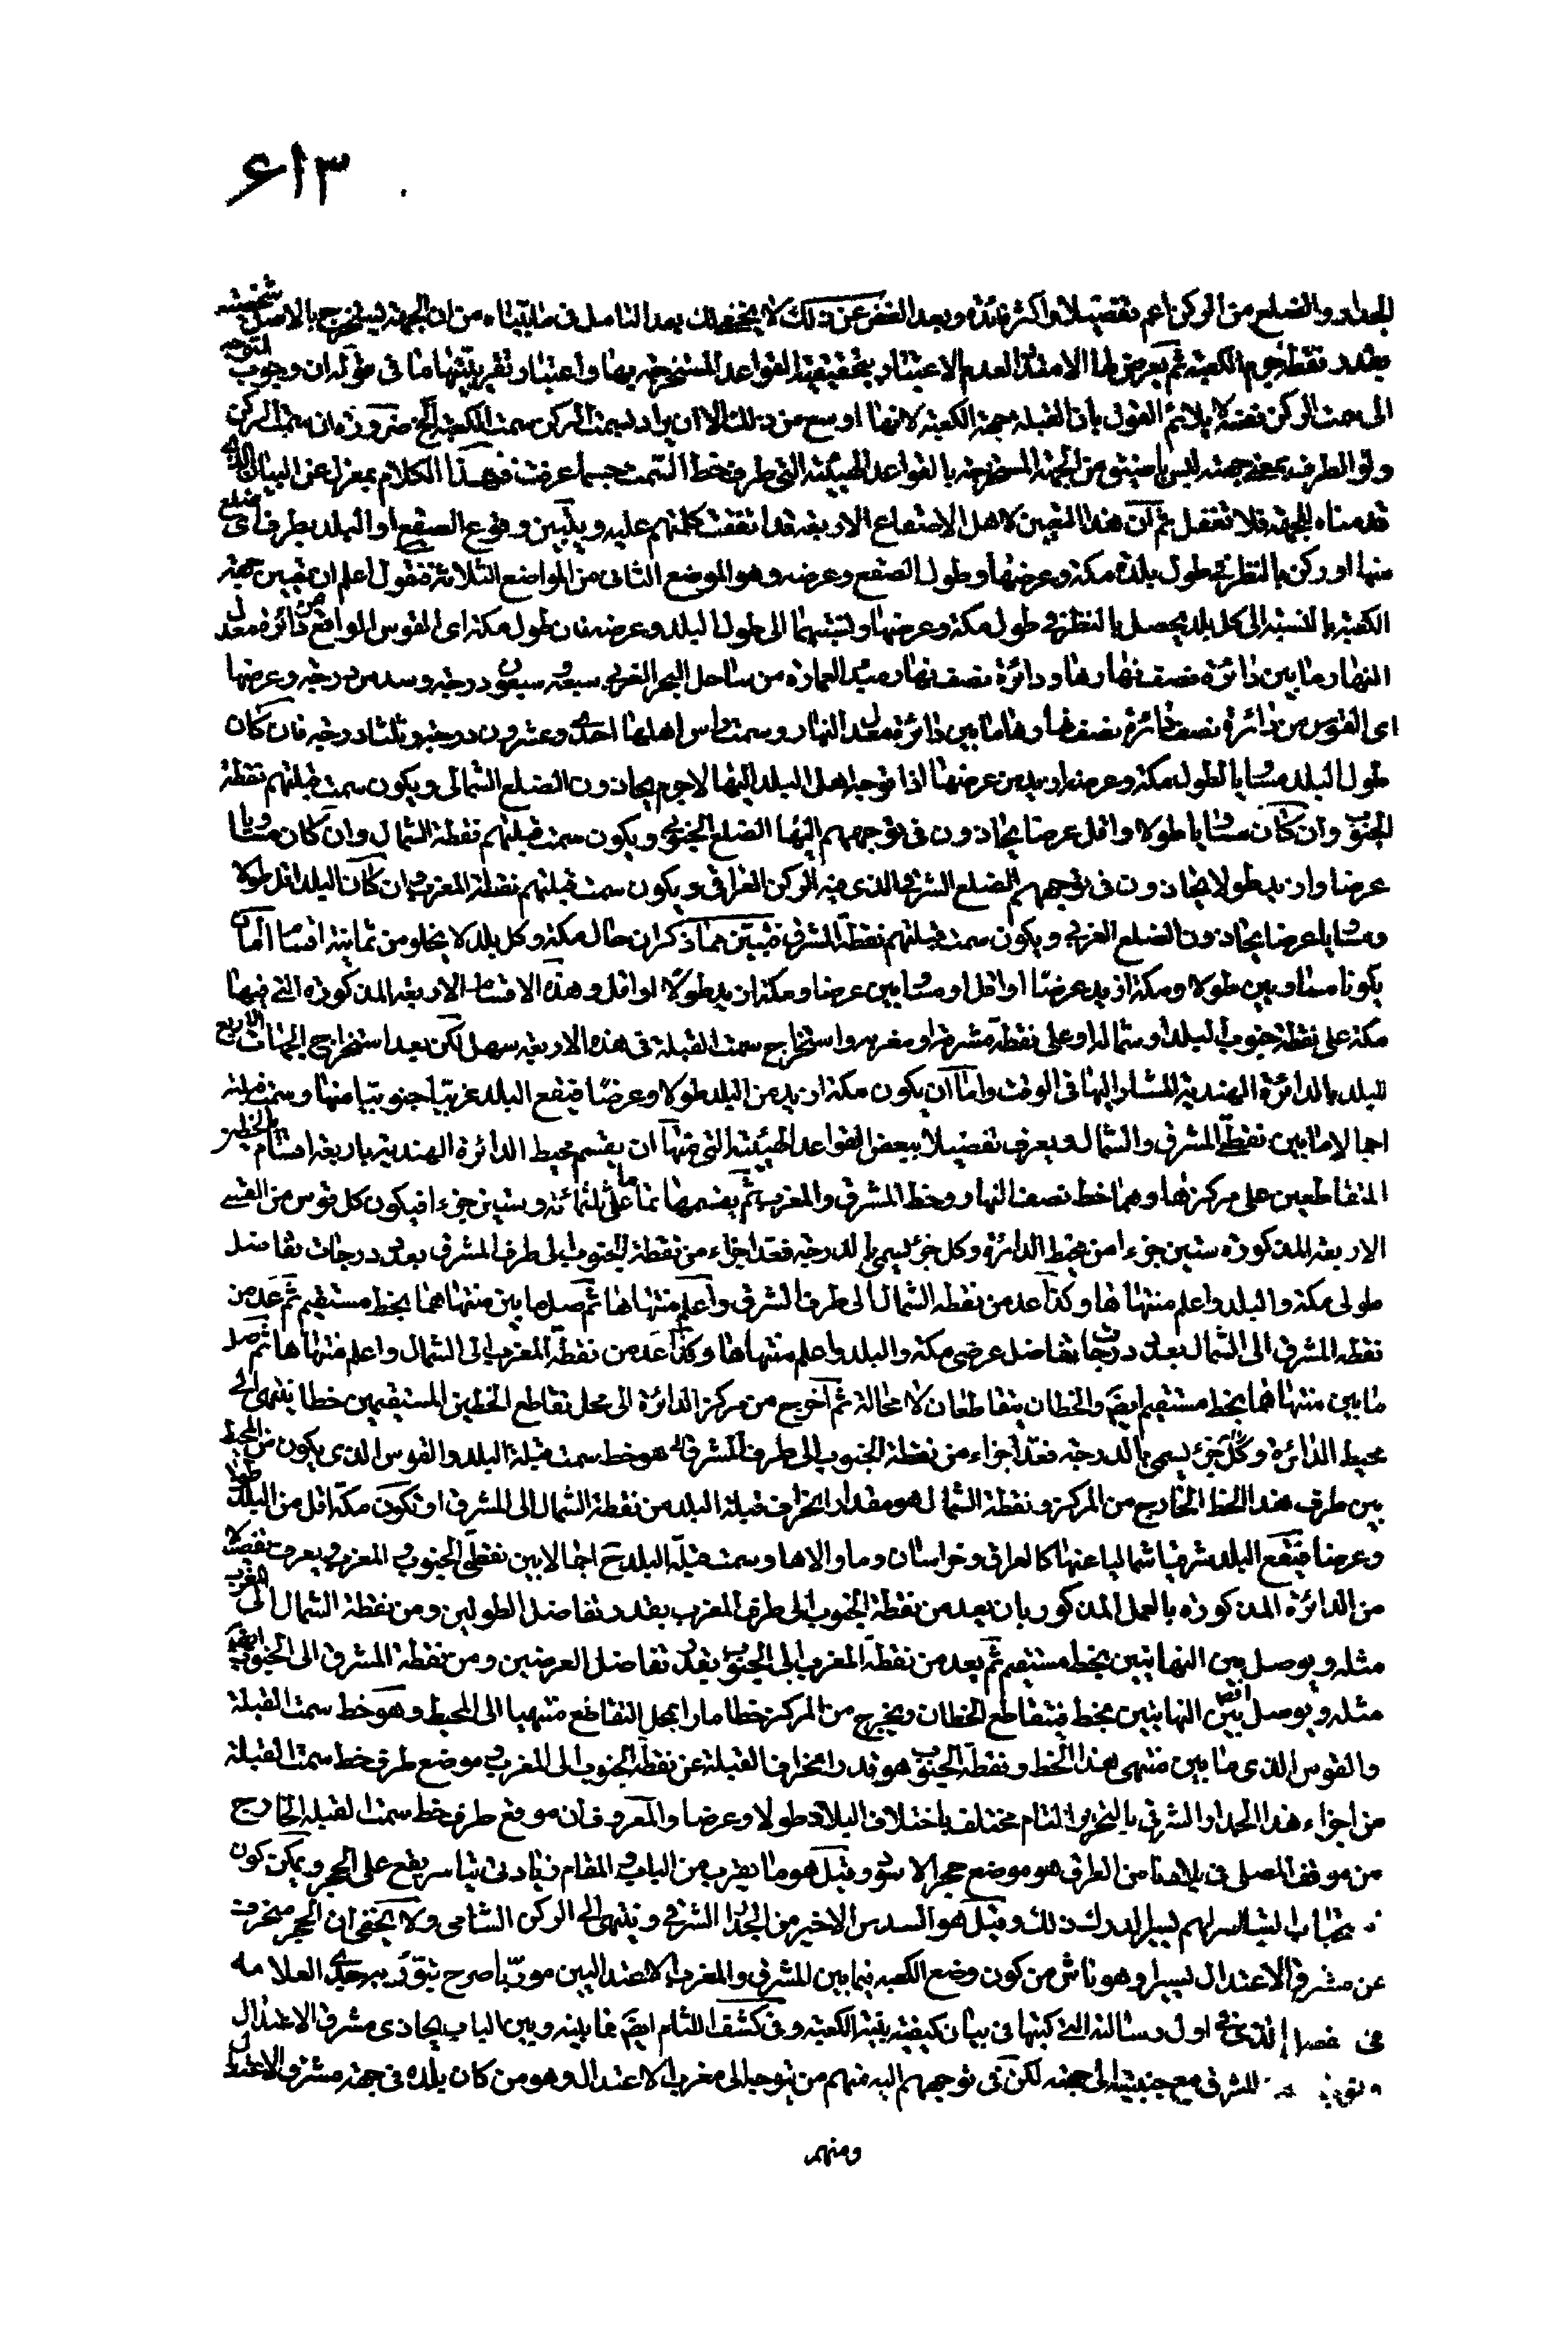 ٦١٣
الجدار والضلع من الركن اعم تفصيلا واكثر فائدة وبعد الغض عن ذلك لا يخفى عليك بعد التامل فى ما بيناه من ان الجهة ليستخرج بالاصل
بقدر نقطة جرم الكعبة ثم يعرض لها الامتداد لعدم الاعتبار بتحقيقية القواعد المستخرجة بها واعتبار تقريبيتها ما فى قوله ان وجوب التوجه
الى سمت الركن نفسه لا يلائم القول بان القبلة جهة الكعبة لانها اوسع من ذلك الا ان يراد بسمت الركن سمت الكعبة الخ ضرورة ان سمت الركن
ولو الطرف بمعنى جهته ليس باضيق من الجهة المستخرجة بالقواعد الهيئية التى طرف خط السمت حسبما عرفت فهذا الكلام بمعزل عن البيان الذى
قدمناه للجهة فلا تغفل ثم ان هذا التعيين لاهل الاصقاع الاربعة قد اتفقت كلمتهم عليه ويتبين وقوع الصقع او البلد بطرف اى ضلع
منها او ركن بالنظر فى طول بلدة مكة وعرضها وطول الصقع وعرضه وهو الموضع الثانى من المواضع الثلاثة فنقول اعلم ان تعيين جهة
الكعبة بالنسبة الى كل بلد يحصل بالنظر فى طول مكة وعرضها ونسبتهما الى طول البلد وعرضه فان طول مكة اى القوس الواقع من دائرة معدل
النهار ما بين دائرة نصف نهارها ودائرة نصف نهار مبدء العمارة من ساحل البحر الغربى سبعة وسبعون درجة وسدس درجة وعرضها
اى القوس من دائرة نصف دائرة نصف نهارها ما بين دائرة معدل النهار وسمت راس اهلها احدى وعشرون درجة وثلثا درجة فان كان
طول البلد مساويا لطول مكة وعرضه ازيد من عرضها اذا توجه اهل البلد اليها لاجرم يحاذون الضلع الشمالى ويكون سمت قبلتهم نقطة
الجنوب وان كان مساويا طولا واقل عرضا يحاذون فى توجههم اليها الضلع الجنوبى ويكون سمت قبلتهم نقطة الشمال وان كان مساويا
عرضا وازيد طولا يحاذون فى توجههم الضلع الشرقى الذى فيه الركن العراقى ويكون سمت قبلتهم نقطة المغرب وان كان البلد اقل طولا
ومساويا عرضا يحاذون الضلع الغربى ويكون سمت قبلتهم نقطة المشرق فتبين مما ذكر ان حال مكة وكل بلد لا يخلو من ثمانية اقسام اما ان
يكونا متساويين طولا ومكة ازيد عرضا او اقل او متساويين عرضا ومكة ازيد طولا او اقل وهذه الاقسام الاربعة المذكورة التى فيها
مكة على نقطة جنوب البلد او شماله او على نقطة مشرقه او مغربه واستخراج سمت القبلة فى هذه الاربعة سهل لكن بعد استخراج الجهات الاربع
للبلد بالدائرة الهندية المشار اليها فى الوقت واما ان يكون مكة ازيد من البلد طولا وعرضا فيقع البلد غربيا جنوبيا منها وسمت قبلته
اجمالا ما بين نقطتى المشرق والشمال ويعرف تفصيلا ببعض القواعد الهيئية التى منها ان يقسم محيط الدائرة الهندية باربعة اقسام بالخطين
المتقاطعين على مركزها وهما خط نصف النهار وخط المشرق والمغرب ثم يقسمها تماما على ثلثمائة وستين جزءا فيكون كل قوس من القسى
الاربعة المذكورة ستين جزءا من محيط الدائرة وكل جزء يسمى بالدرجة فعد اجزاء من نقطة الجنوب الى طرف المشرق بعدد درجات تفاضل
طولى مكة والبلد واعلم منتهاها وكذا عد من نقطة الشمال الى طرف المشرق واعلم منتهاها ثم صل ما بين منتهاهما بخط مستقيم ثم عد من
نقطة المشرق الى الشمال بعدد درجات تفاضل عرضى مكة والبلد واعلم منتهاها وكذا عد من نقطة المغرب الى الشمال واعلم منتهاها ثم صل
ما بين منتهاهما بخط مستقيم ايضا والخطان يتقاطعان لا محالة ثم اخرج من مركز الدائرة الى محل تقاطع الخطين المستقيمين خطا ينتهى الى
محيط الدائرة وكل جزء يسمى بالدرجة فعد اجزاء من نقطة الجنوب الى طرف المشرق هو خط سمت قبلة البلد والقوس الذى يكون من المحيط
بين طرف هذا الخط الخارج من المركز ونقطة الشمال هو مقدار انحراف قبلة البلد من نقطة الشمال الى المشرق او تكون مكة اقل من البلد طولا
وعرضا فيقع البلد شرقيا شماليا عنها كالعراق وخراسان وما والاها وسمت قبلة البلد ح اجمالا بين نقطتى الجنوب والمغرب ويعرف تفصيلا
من الدائرة المذكورة بالعمل المذكور بان يعد من نقطة الجنوب الى طرف المغرب بقدر تفاضل الطولين ومن نقطة الشمال الى المغرب
مثله ويوصل بين النهايتين بخط مستقيم ثم يعد من نقطة المغرب الى الجنوب بقدر تفاضل العرضين ومن نقطة المشرق الى الجنوب ايضا
مثله ويوصل بين النهايتين بخط فيتقاطع الخطان ويخرج من المركز خطا مارا بمحل التقاطع منتهيا الى المحيط وهو خط سمت القبلة
والقوس الذى ما بين منتهى هذا الخط ونقطة الجنوب هو قدر انحراف القبلة عن نقطة الجنوب الى المغرب وموضع طرف خط سمت القبلة
من اجزاء هذا الجدار الشرقى بالتحرير التام مختلف باختلاف البلاد طولا وعرضا والمعروف ان موقع طرف خط سمت القبلة الخارج
من موقف المصلى فى بلادنا من العراق هو موضع حجر الاسود وقيل هو ما يقرب من الباب والمقام فبادنى تياسر يقع على الحجر ويمكن كون
استحباب التياسر لهم يسيرا لدرك ذلك وقيل هو السدس الاخير من الجدار الشرقى وينتهى الى الركن الشامى ولا يخفى ان الحجر منحرف
عن مشرق الاعتدال يسيرا وهو ناش من كون وضع الكعبة فيما بين المشرق والمغرب الاعتداليين موربا صرح بتوريبه جدى العلامة
فى اول رسالته التى كتبها فى بيان كيفية بقية الكعبة وفى كشف اللثام ايضا فما بينه وبين الباب يحاذى مشرق الاعتدال
المشرق مع جنبيته الى جهته لكن فى توجههم اليه منهم من يتوجه الى مغرب الاعتدال وهو من كان بلده فى جهة مشرق الاعتدال
ومنهم